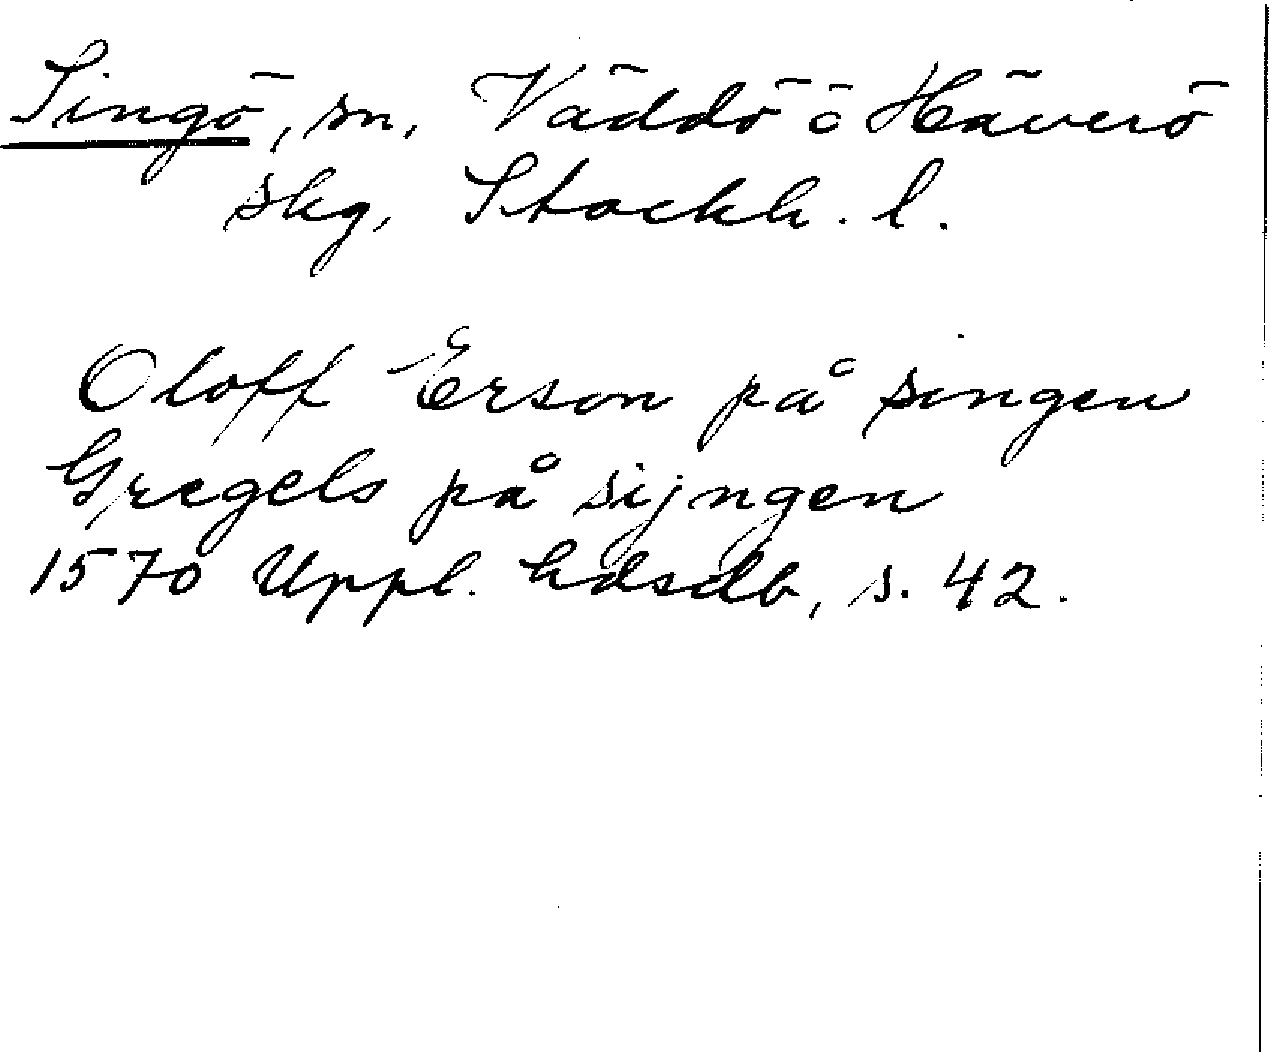 Singö, sn, Väddö ö Häverö
skg, Stockh. l.
Oloff Erson på singen
Gregels på sijngen
1570 Uppl. hdsdb, s. 42.